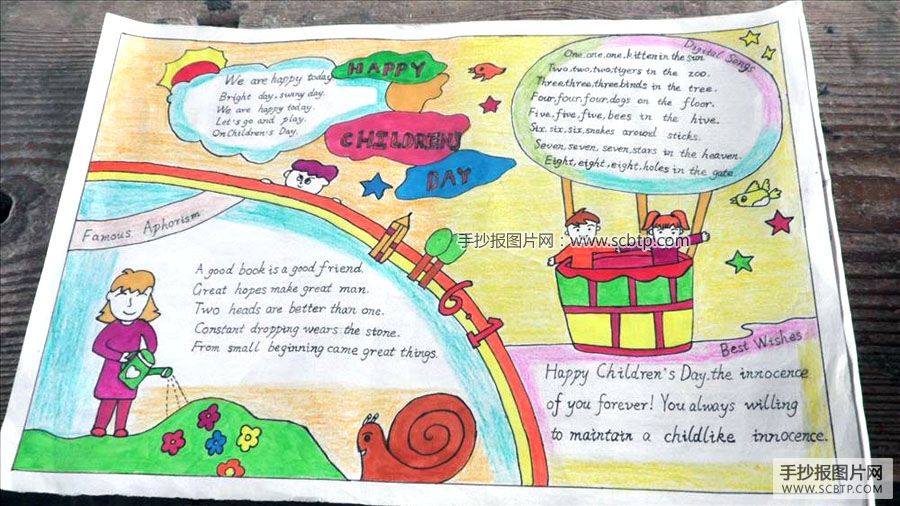 We are happy today
Bright day, sunny day.
We are happy today.
Let's go and play.
On Children's Day.
HAPPY
CHILDREN'S
DAY
Digital Songs
One, one, one, kitten in the sun
Two, two, two, tigers in the zoo.
Three, three, three, birds in the tree.
Four, four, four, dogs on the floor.
Five, five, five, bees in the hive.
Six, six, six, snakes around sticks.
Seven, seven, seven, stars in the heaven.
Eight, eight, eight, holes in the gate.
Famous Aphorism
A good book is a good friend.
Great hopes make great man.
Two heads are better than one.
Constant dropping wears the stone.
From small beginning came great things.
6.1
手抄报图片网：www.scbtp.com
Best Wishes
Happy Children's Day. the innocence
of you forever! You always willing
to maintain a childlike innocence.
手抄报图片网
WWW.SCBTP.COM